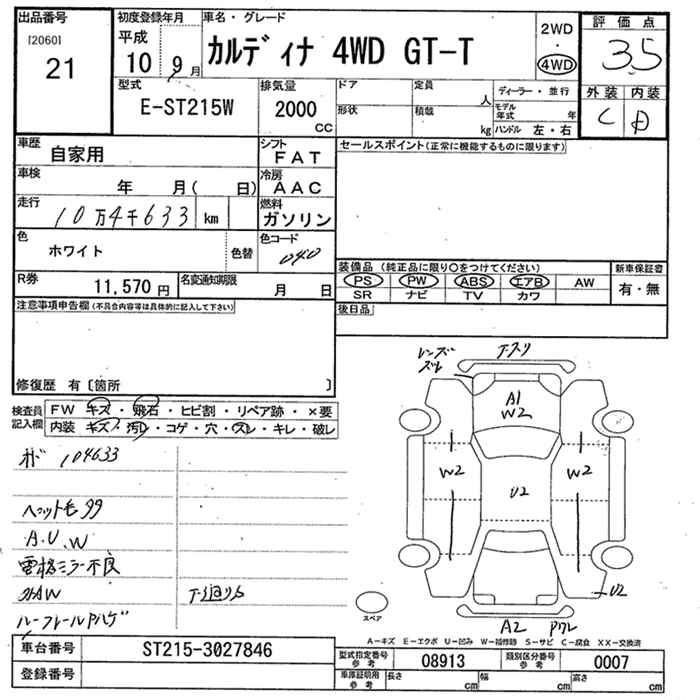 出品番号
[2060]
21
初度登録年月
平成
10 9月
車名・グレード
カルディナ 4WD GT-T
2WD
・
4WD
評価点
3.5
外装 内装
C D
型式
E-ST215W
排気量
2000
CC
ドア
定員
人
形状
積載
kg
ディーラー・並行
モデル年式 年
ハンドル 左・右
車歴
自家用
シフト
FAT
セールスポイント(正常に機能するものに限ります)
車検
年 月( 日)
冷房
AAC
走行
10万4千633 km
燃料
ガソリン
色
ホワイト
色替
色コード
040
装備品(純正品に限り〇をつけてください)
PS PW ABS エアB AW
SR ナビ TV カワ
新車保証書
有・無
R券
11,570円
名変通知期限
月 日
後日品
注意事項申告欄(不具合内容等は具体的に記入して下さい)
修復歴 有[箇所 ]
検査員記入欄
FW キズ・飛石・ヒビ割・リペア跡・×要
内装 キズ・汚レ・コゲ・穴・スレ・キレ・破レ
104633
A.U.W
電格ミラー不良
レンズ
スレ
A1
W2
W2
U2
W2
U2
スペア
A2
A-キズ E-エクボ U-凹ミ W-補修跡 S-サビ C-腐食 XX-交換済
車台番号
ST215-3027846
登録番号
型式指定番号
参考
08913
類別区分番号
参考
0007
車庫証明用
参考
長さ cm
幅 cm
高さ cm